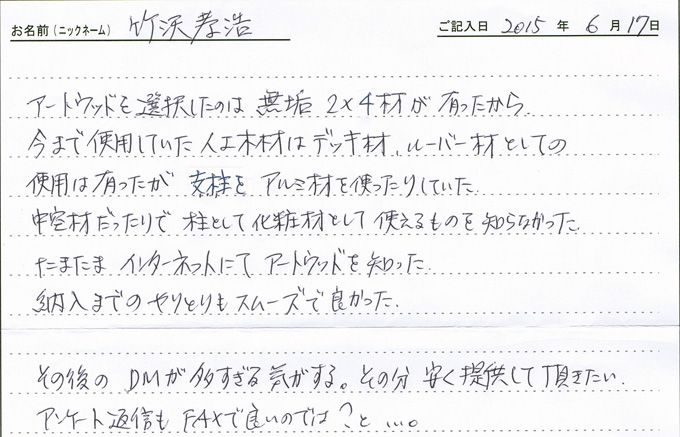 お名前(ニックネーム) 竹沢孝浩 ご記入日 2015年 6月17日
アートウッドを選択したのは 無垢 2×4材が有ったから.
今まで使用していた人工木材はデッキ材、ルーバー材としての
使用は有ったが 支柱を アルミ材を使ったりしていた.
中空材だったりで 柱として化粧材として使えるものを知らなかった.
たまたま インターネットにて アートウッドを知った.
納入までのやりとりもスムーズで良かった.
その後の DMが多すぎる気がする。その分 安く提供して頂きたい.
アンケート返信も FAXで良いのでは?と …。